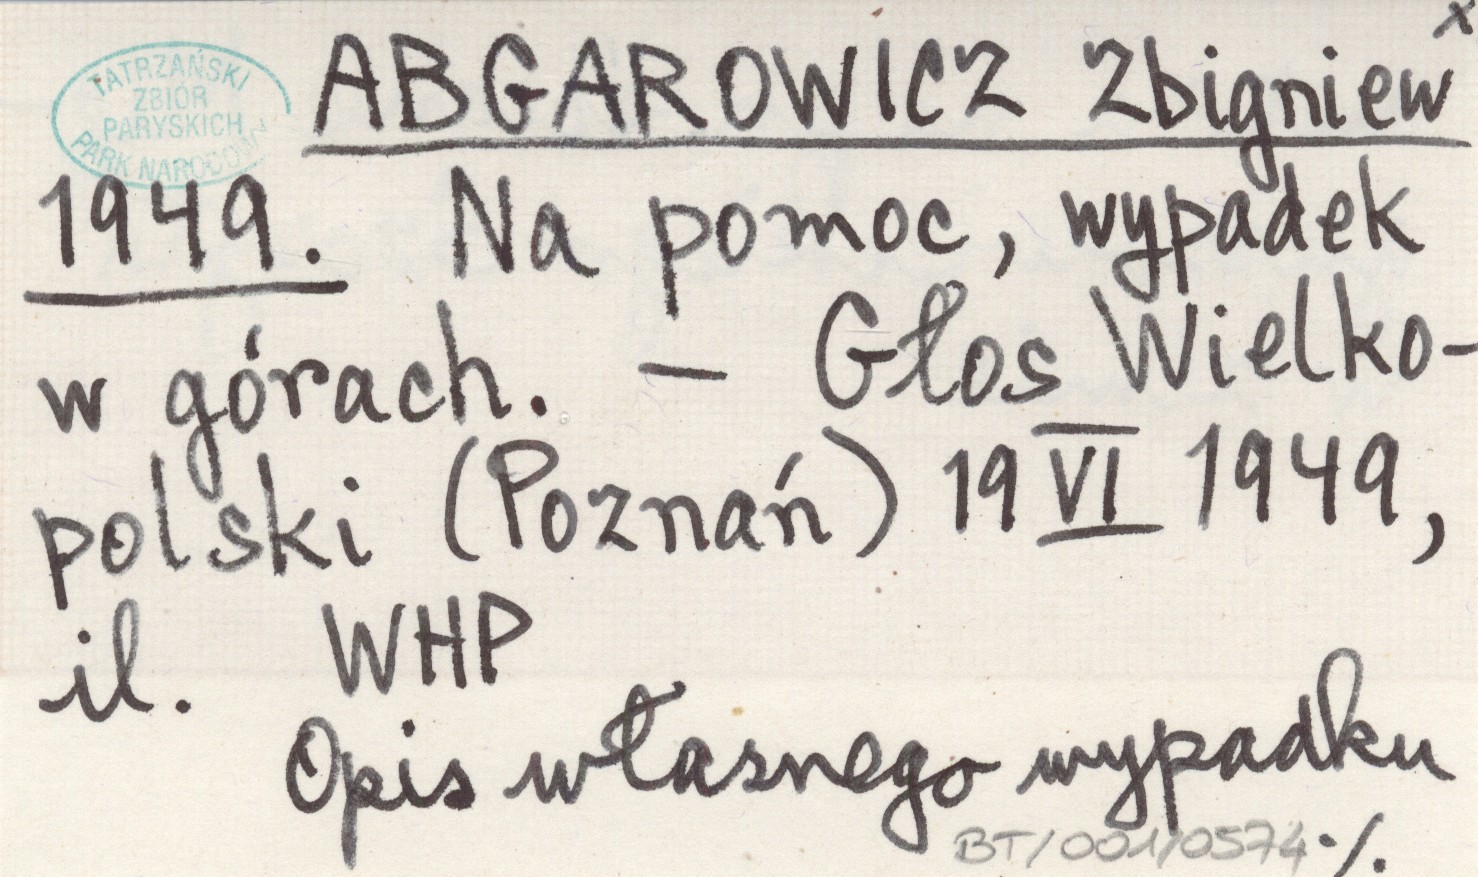 x
TATRZAŃSKI
ZBIÓR
PARYSKICH
PARK NARODOWY
ABGAROWICZ Zbigniew
1949. Na pomoc, wypadek
w górach. — Głos Wielko-
polski (Poznań) 19 VI 1949,
il. WHP
Opis własnego wypadku
BT/001/0574 ./.